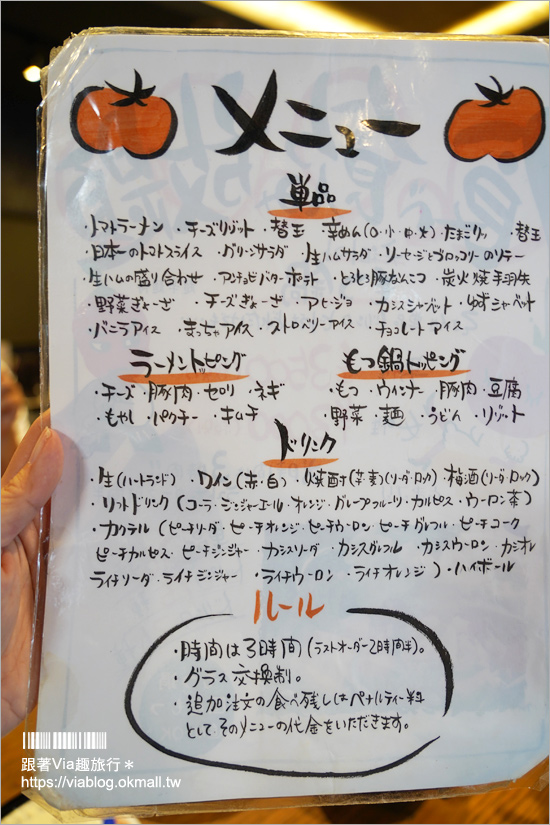 メニュー
単品
・トマトラーメン ・チーズリゾット ・替玉 辛めん(0・小・中・大)
・日本一のトマトスライス ・グリーンサラダ ・生ハムサラダ ・ソーセージとブロッコリーのソテー
・生ハムの盛り合わせ ・アンチョビバターポテト ・とろとろ豚なんこつ ・炭火焼手羽先
・野菜ぎょーざ ・チーズぎょーざ ・アヒージョ ・カシスシャーベット ・ゆずシャーベット
・バニラアイス ・まっちゃアイス ・ストロベリーアイス ・チョコレートアイス
ラーメントッピング
・チーズ ・豚肉 ・セロリ ・ネギ
・もやし ・パクチー ・キムチ
もつ鍋トッピング
・もつ ・ウインナー ・豚肉 ・豆腐
・野菜 ・麺 ・うどん ・リゾット
ドリンク
・生(ハートランド) ・ワイン(赤・白) ・焼酎(芋・麦)(ソーダ・ロック) ・梅酒(ソーダ・ロック)
・ソフトドリンク(コーラ・ジンジャーエール・オレンジ・グレープフルーツ・カルピス・ウーロン茶)
・カクテル(ピーチソーダ・ピーチオレンジ・ピーチウーロン・ピーチグレフル・ピーチコーク
ピーチカルピス・ピーチジンジャー・カシスソーダ・カシスグレフル・カシスウーロン・カシオレ
ライチソーダ・ライチジンジャー・ライチウーロン・ライチオレンジ)・ハイボール
ルール
・時間は3時間(ラストオーダー2時間半)。
・グラス交換制。
・追加注文の食べ残しはペナルティー料
としてそのメニューの代金をいただきます。
跟著Via趣旅行＊
https://viablog.okmall.tw